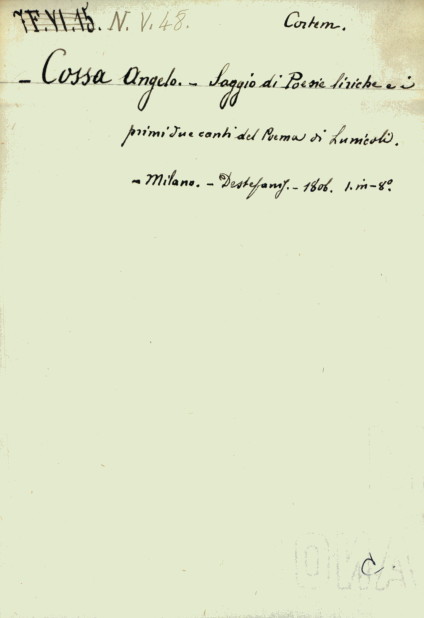 7F.VI.15. N. V. 48. Contem.
- Cossa Angelo. - Saggio di Poesie liriche e i
primi due canti del Poema di Lunicoli.
- Milano. - Destefanis. - 1806. 1. in-8º.
C.